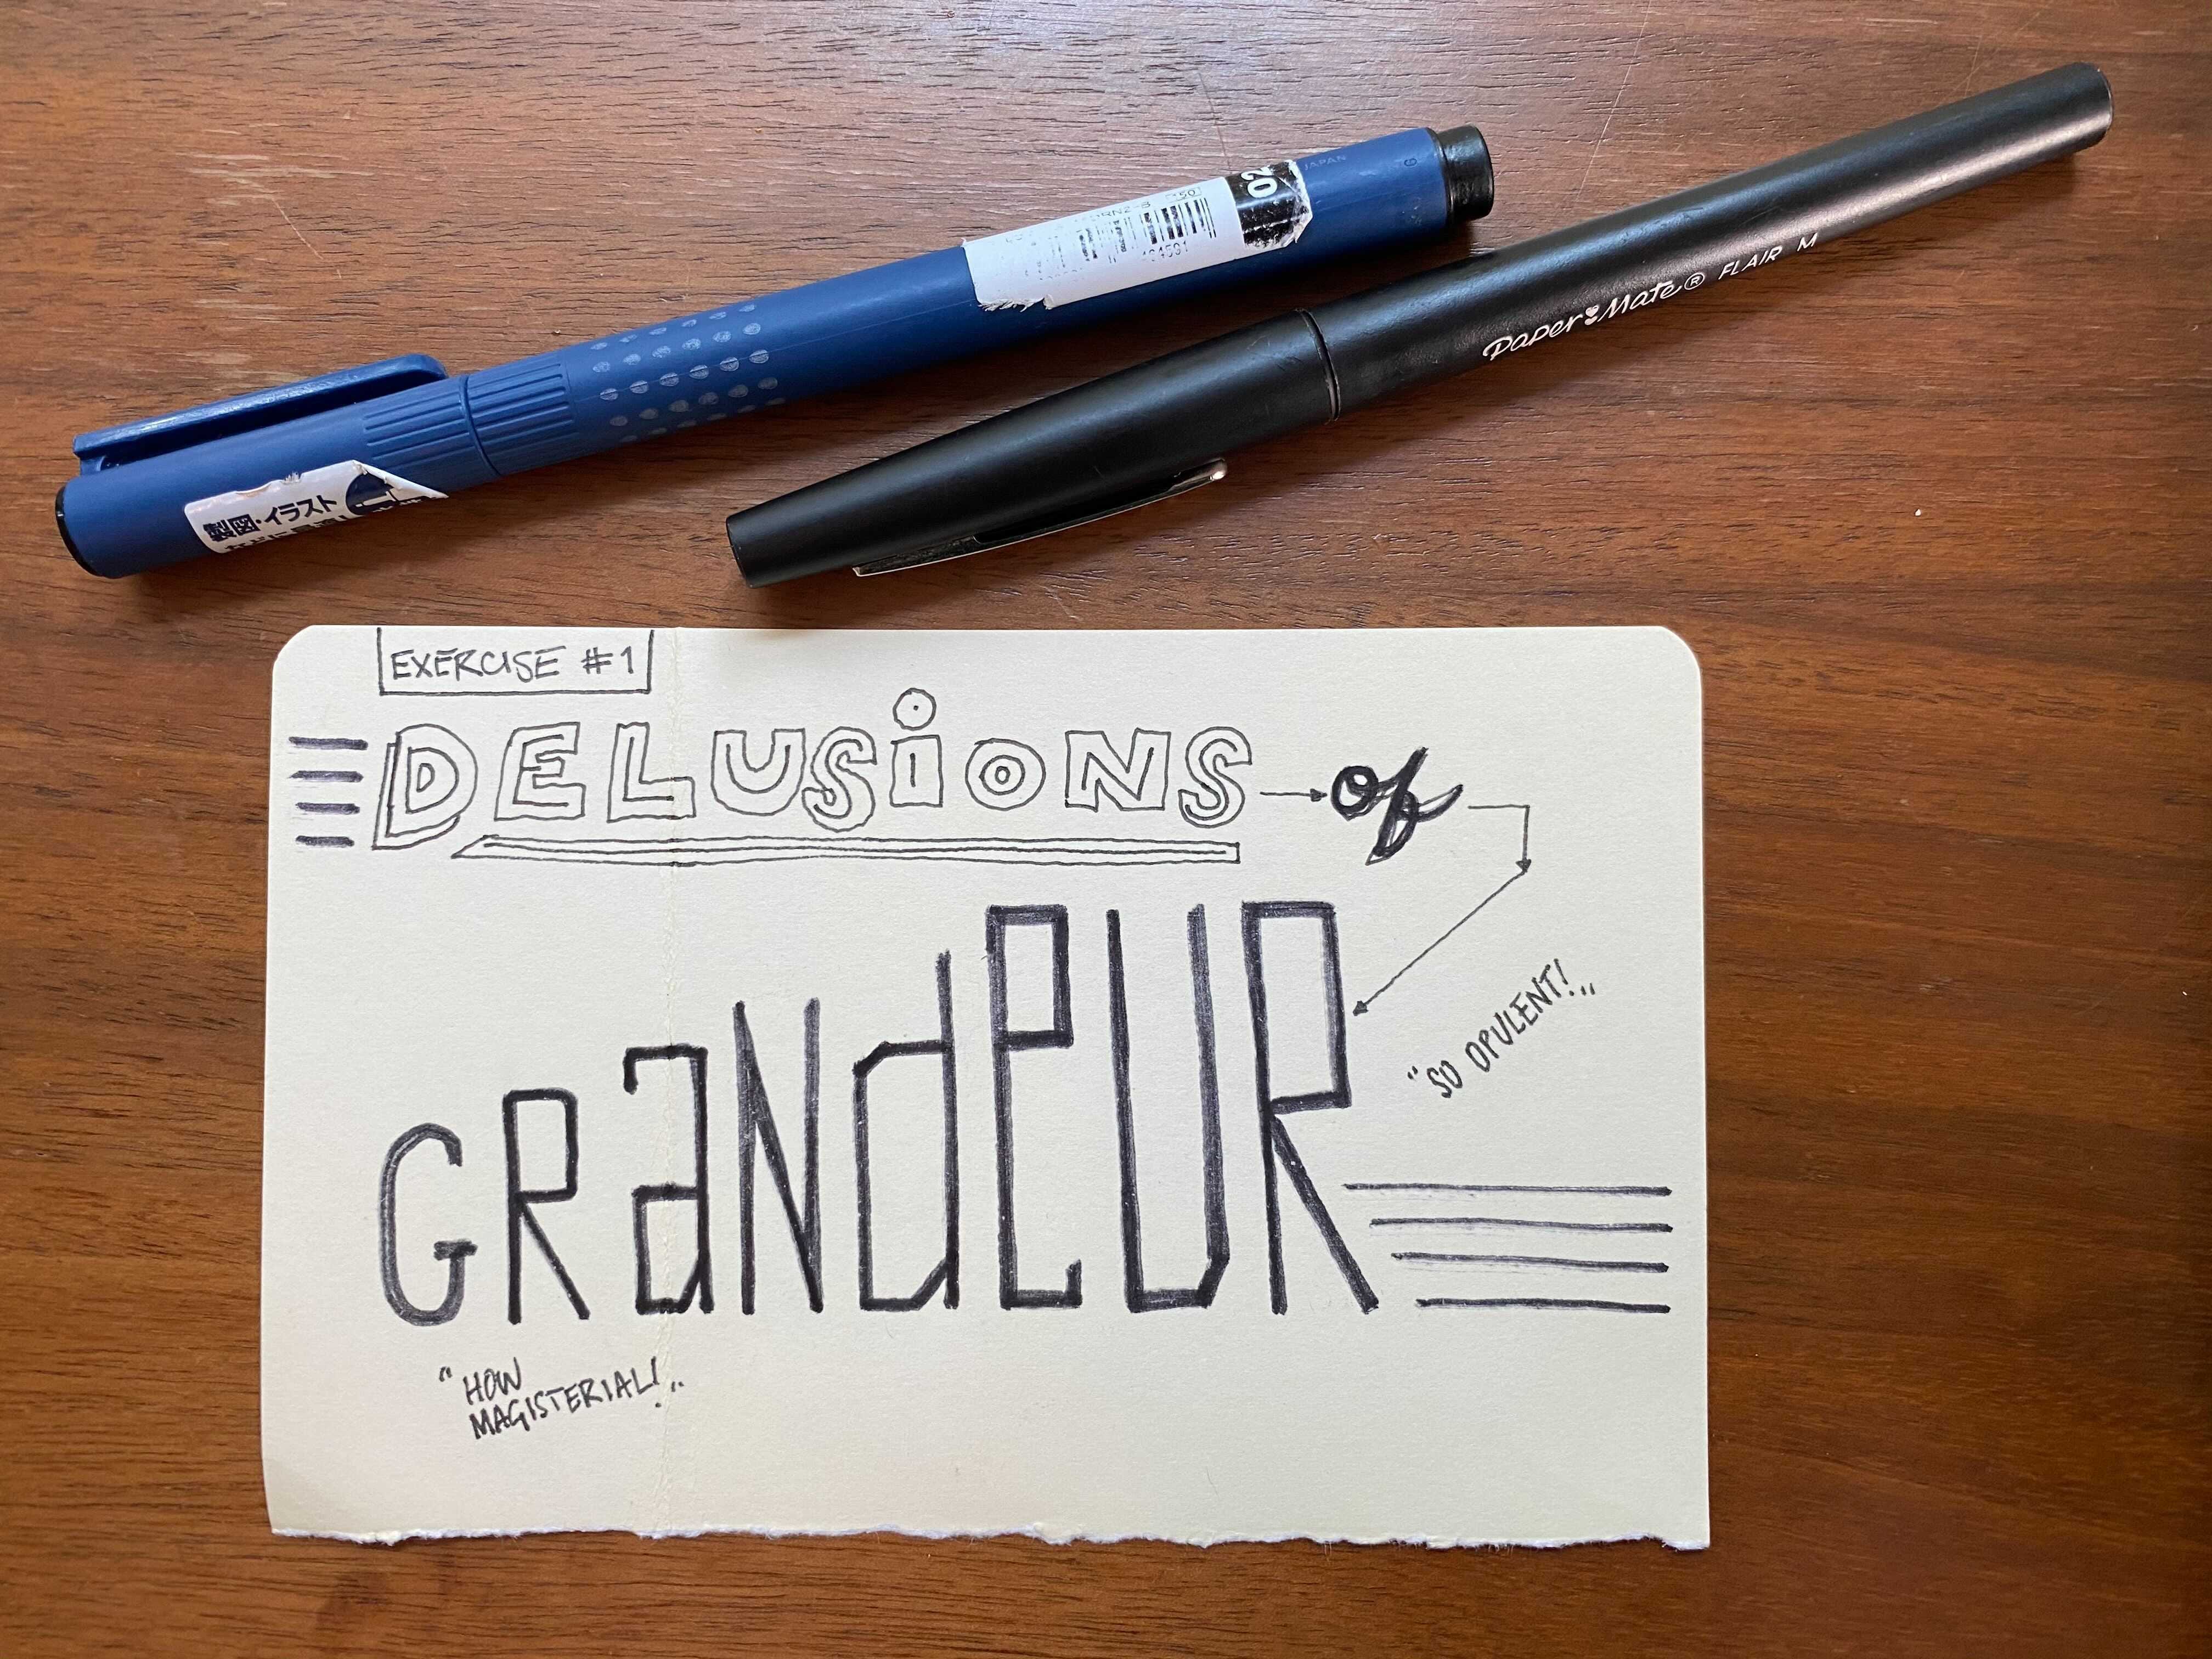 JAPAN
G
02
製図・イラスト
Paper Mate® FLAIR M
EXERCISE #1
DELUSiONS → of
GRaNdeUR
"SO OPULENT!"
"HOW
MAGISTERIAL!"